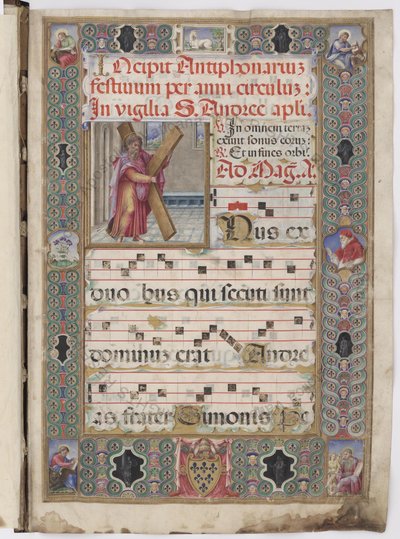 INcipit Antiphonariuz
festiuum per anni circuluz:
In vigilia S. Andree apli.
V. In omnem terraz
exiuit sonus eoruz:
R. Et in fines orbis.
Ad Mag. A.
Nus ex
duo bus qui secuti sunt
dominuz erat Andre
as frater Simonis Pe